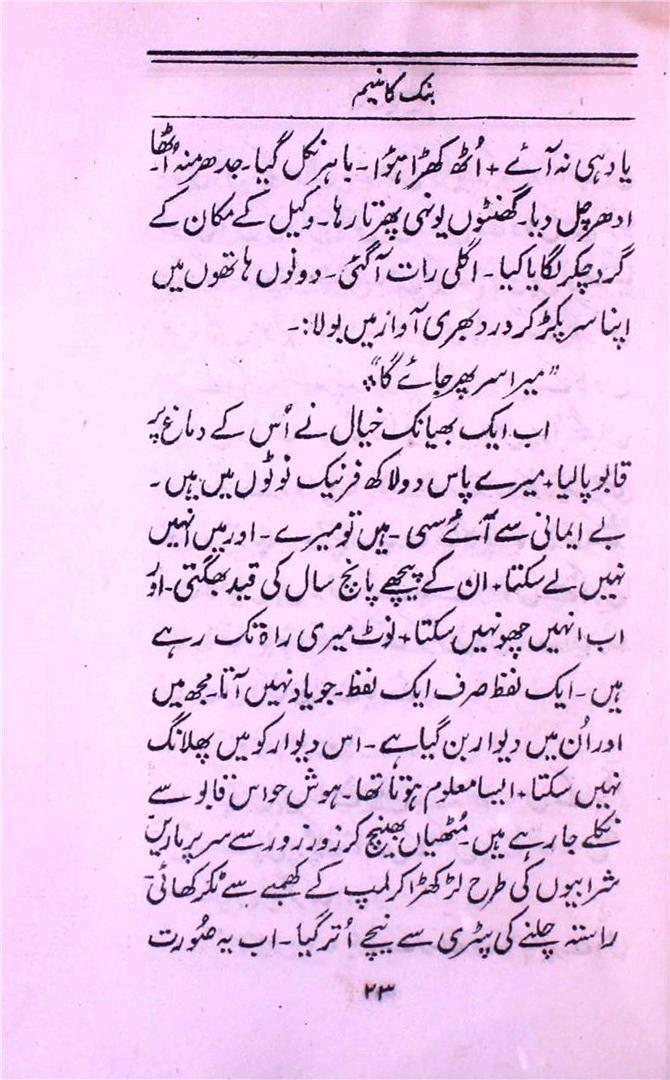 بنک کا منیم
یاد ہی نہ آئے + اُٹھ کھڑا ہوُا ۔ باہر نکل گیا ۔ جدھر منہ اُٹھا
ادھر چل دیا ۔ گھنٹوں یونہی پھرتا رہا ۔ وکیل کے مکان کے
گرد چکر لگایا کیا ۔ اگلی رات آگئی ۔ دونوں ہاتھوں میں
اپنا سر پکڑ کر درد بھری آواز میں بولا :۔
"میرا سر پھر جائے گا" ⁘
اب ایک بھیانک خیال نے اُس کے دماغ پر
قابو پا لیا + میرے پاس دو لاکھ فرنیک نوٹوں میں ہیں ۔
بے ایمانی سے آئے سہی ۔ ہیں تو میرے ۔ اور میں انہیں
نہیں لے سکتا + ان کے پیچھے پانچ سال کی قید بھگتی ۔ اور
اب انہیں چھو نہیں سکتا + نوٹ میری راہ تک رہے
ہیں ۔ ایک لفظ صرف ایک لفظ ۔ جو یاد نہیں آتا ۔ مجھ میں
اور اُن میں دیوار بن گیا ہے ۔ اس دیوار کو میں پھلانگ
نہیں سکتا + ایسا معلوم ہوتا تھا ۔ ہوش حواس قابو سے
نکلے جا رہے ہیں ۔ مُٹھیاں بھینچ کر زور زور سے سر پر ماریں
شرابیوں کی طرح لڑکھڑا کر لمپ کے کھمبے سے ٹکر کھائی ۔
راستہ چلنے کی پٹری سے نیچے اُتر گیا ۔ اب یہ صُورت
۲۳